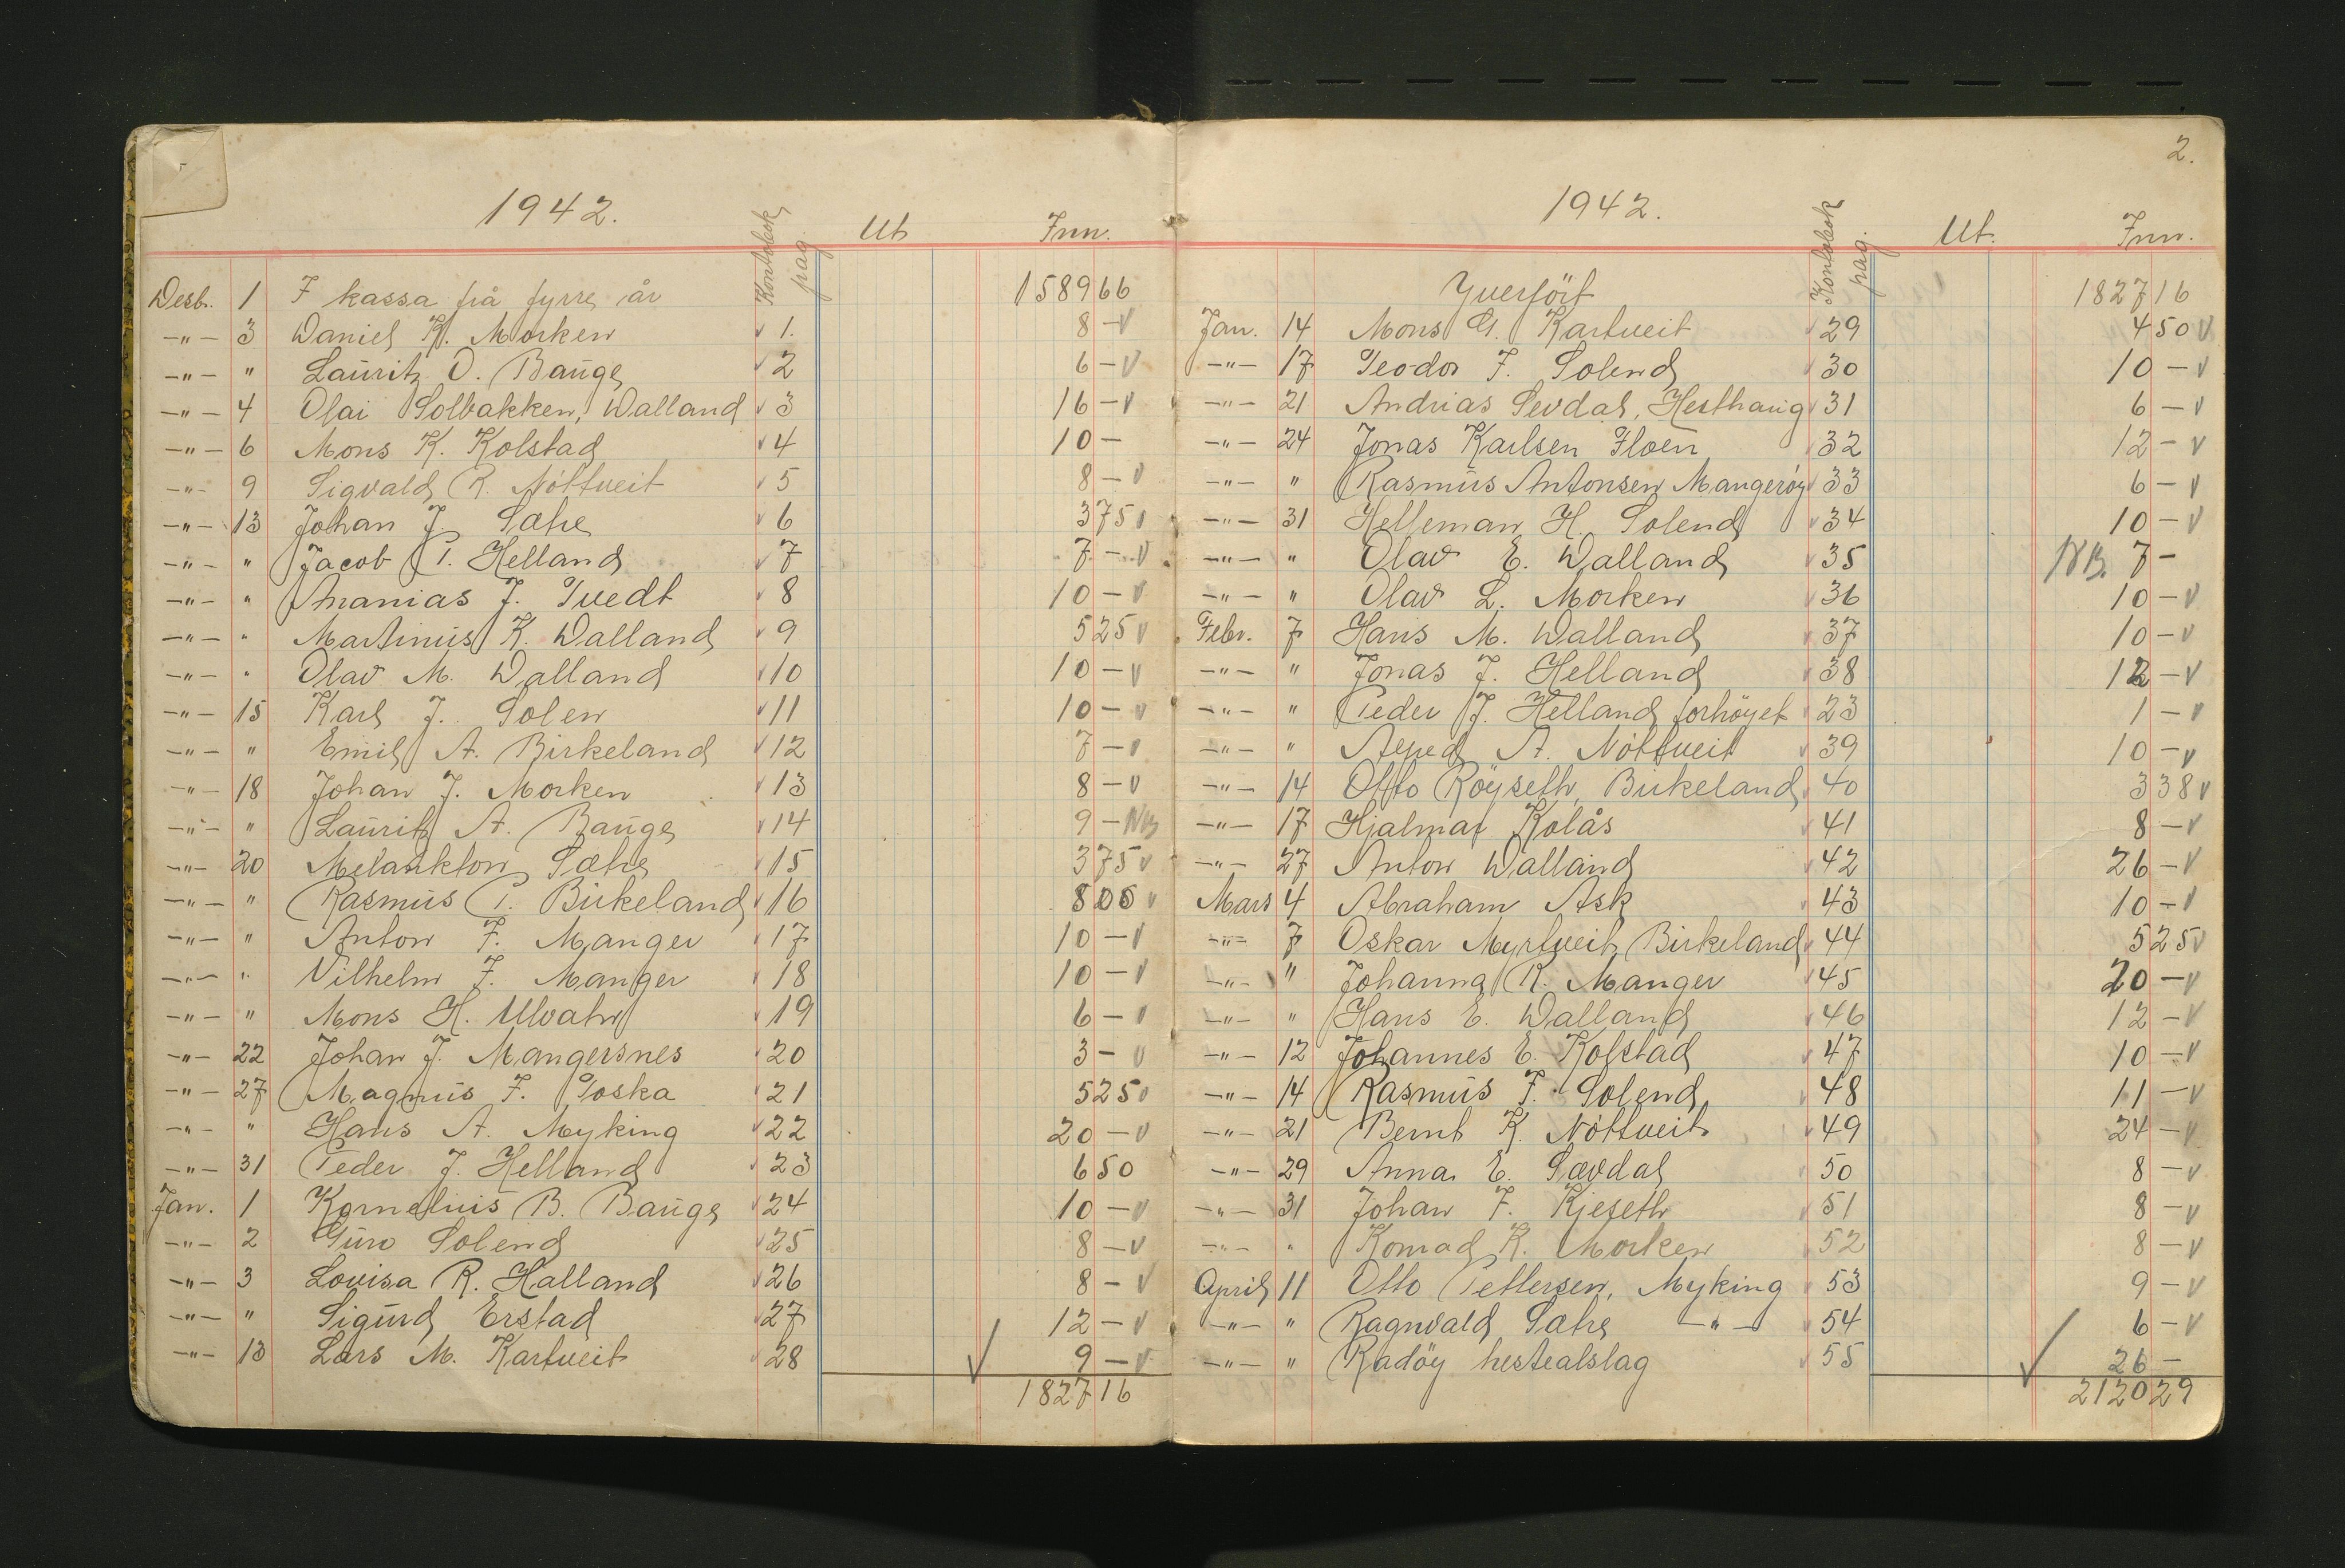 1942.
Kontobok pag. Ut Inn.
Desb. 1 I kassa frå fyrre år 1589 66
—"— 3 Daniel K. Morken v 1. 8 — v
—"— " Lauritz O. Bauge v 2 6 — v
—"— 4 Olai Solbakken, Walland v 3 16 — v
—"— 6 Mons K. Kolstad v 4 10 —
—"— 9 Sigvald R. Nöttveit v 5 8 — v
—"— 13 Johan J. Sæhe v 6 3 75 v
—"— " Jacob P. Helland v 7 7 — v
—"— " Ananias J. Tvedt v 8 10 — v
—"— " Martinus K. Walland v 9 5 25 v
—"— " Olav M. Walland v 10 10 — v
—"— 15 Karl J. Solen v 11 10 — v
—"— " Emil A. Birkeland v 12 7 — v
—"— 18 Johan J. Morken v 13 8 — v
—"— " Laurits A. Bauge v 14 9 — NB
—"— 20 Melankton Sæhe v 15 3 75 v
—"— " Rasmus P. Birkeland v 16 8 00 v
—"— " Anton F. Manger v 17 10 — v
—"— " Vilhelm F. Manger v 18 10 — v
—"— " Mons H. Ulvatn v 19 6 — v
—"— 22 Johan J. Mangersnes v 20 3 — v
—"— 27 Magnus F. Toska v 21 5 25 v
—"— " Hans A. Myking v 22 20 — v
—"— 31 Peder J. Helland v 23 6 50
Jan. 1 Kornelius B. Bauge v 24 10 — v
—"— 2 Guro Solend v 25 8 — v
—"— 3 Lovisa R. Halland v 26 8 — v
—"— " Sigurd Erstad v 27 12 — v
—"— 13 Lars M. Kartveit v 28 9 — v
1827 16
2.
1942.
Kontobok pag. Ut. Inn.
Yverfört 1827 16
Jan. 14 Mons G. Kartveit v 29 4 50 v
—"— 17 Teodor F. Solend v 30 10 — v
—"— 21 Andrias Sevdal, Hesthaug v 31 6 — v
—"— 24 Jonas Karlsen Floen v 32 12 — v
—"— " Rasmus Antonsen Mangeröy v 33 6 — v
—"— 31 Helleman H. Solend v 34 10 — v
—"— " Olav E. Walland v 35 NB. 7 —
—"— " Olav L. Morken v 36 10 — v
Febr. 7 Hans M. Walland v 37 10 — v
—"— " Jonas J. Helland v 38 12 — v
—"— " Peder J. Helland forhöyet v 23 1 — v
—"— " A. Nöttveit v 39 10 — v
—"— 14 Otto Röyseth, Birkeland v 40 3 38 v
—"— 17 Hjalmar Kolås v 41 8 — v
—"— 27 Anton Walland v 42 26 — v
Mars 4 Abraham Ask v 43 10 — v
—"— 7 Oskar Myrtveit, Birkeland v 44 5 25 v
—"— " Johanna R. Manger v 45 20 — v
—"— " Hans E. Walland v 46 12 — v
—"— 12 Johannes E. Kolstad v 47 10 — v
—"— 14 Rasmus F. Solend v 48 11 — v
—"— 21 Bernt K. Nöttveit v 49 24 — v
—"— 29 Anna E. Sævdal v 50 8 — v
—"— 31 Johan F. Kjeseth v 51 8 — v
—"— " Konrad K. Morken v 52 8 — v
April 11 Otto Pettersen, Myking v 53 9 — v
—"— " Ragnvald Sæhe —"— v 54 6 — v
—"— " Radöy hestealslag v 55 26 —
2120 29